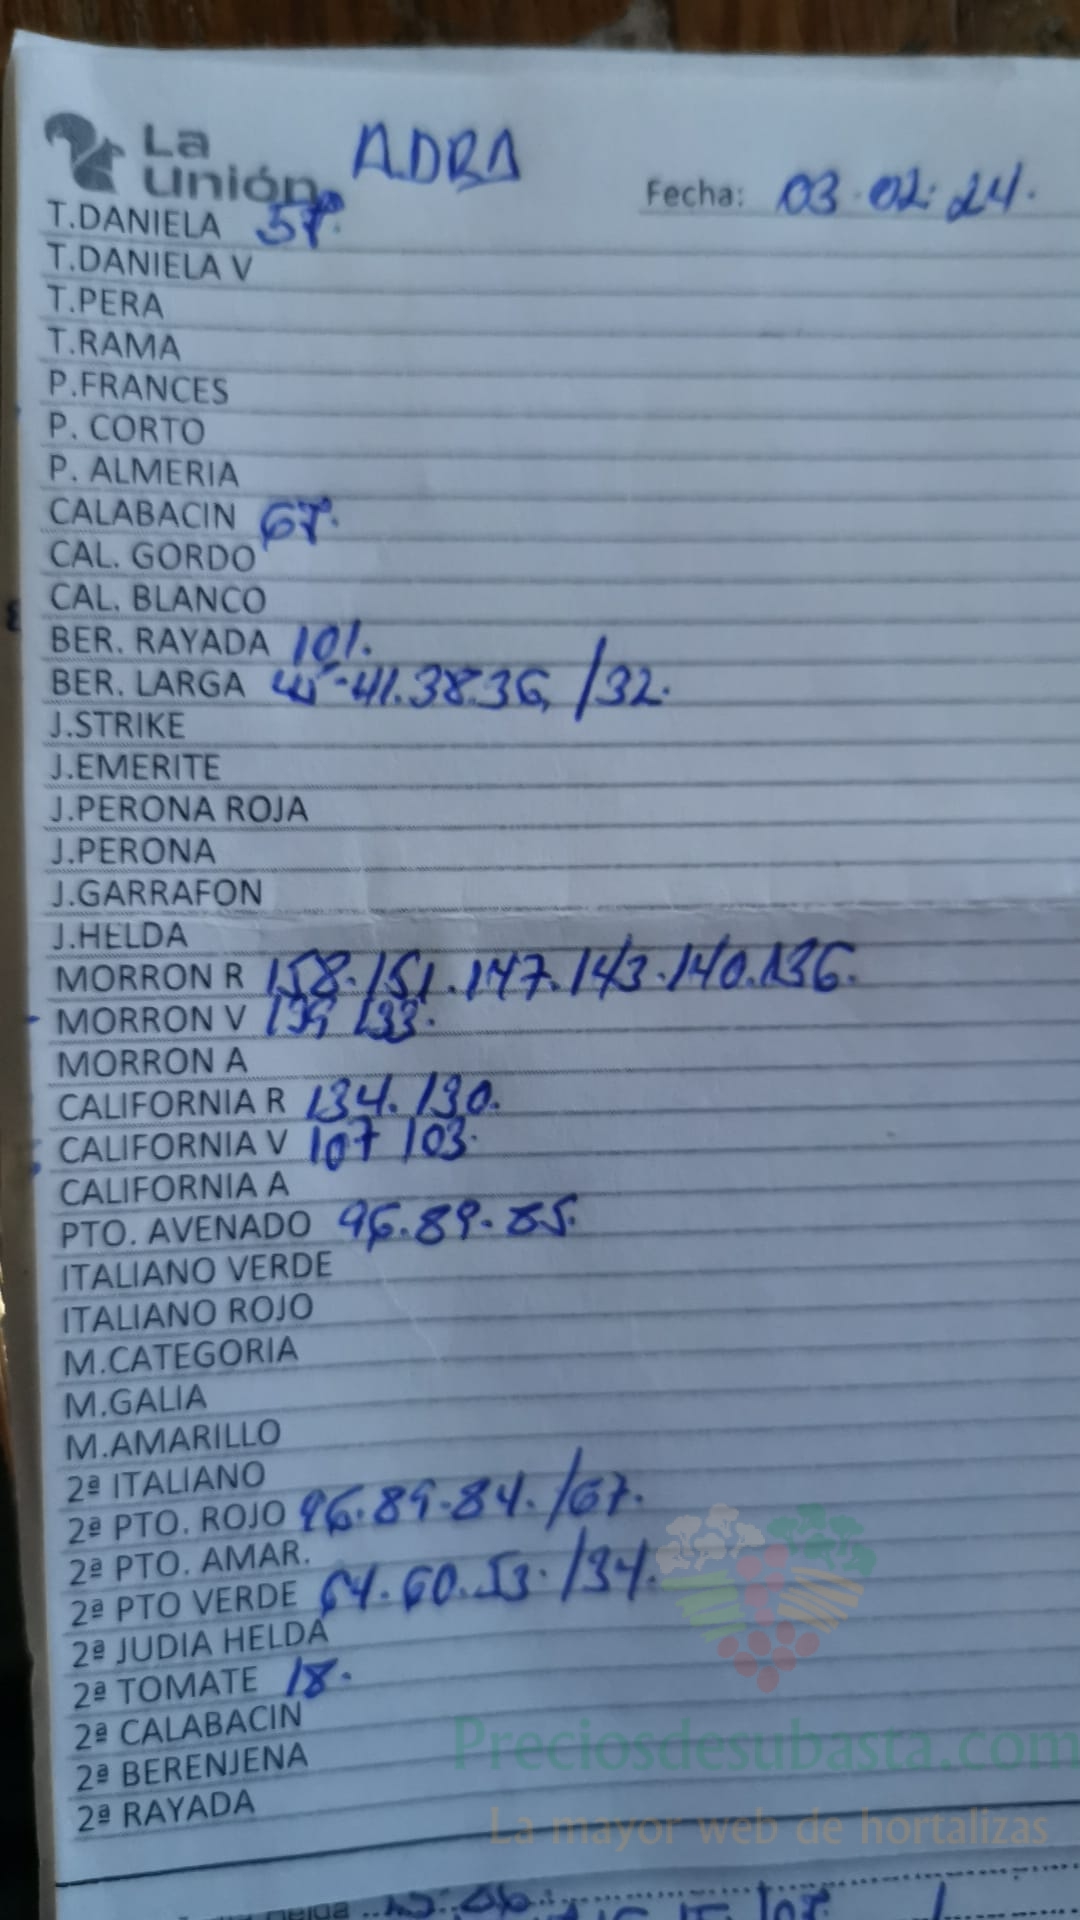 La Unión ADRA Fecha: 03.02.24.
T.DANIELA 57.
T.DANIELA V
T.PERA
T.RAMA
P.FRANCES
P. CORTO
P. ALMERIA
CALABACIN 67.
CAL. GORDO
CAL. BLANCO
BER. RAYADA 101.
BER. LARGA 45-41.38.36, /32.
J.STRIKE
J.EMERITE
J.PERONA ROJA
J.PERONA
J.GARRAFON
J.HELDA
MORRON R 158.151.147.143.140.136.
MORRON V 139 133.
MORRON A
CALIFORNIA R 134.130.
CALIFORNIA V 107 103.
CALIFORNIA A
PTO. AVENADO 96.89-85.
ITALIANO VERDE
ITALIANO ROJO
M.CATEGORIA
M.GALIA
M.AMARILLO
2ª ITALIANO
2ª PTO. ROJO 96.89-84./67.
2ª PTO. AMAR.
2ª PTO VERDE 64.60.53./34.
2ª JUDIA HELDA
2ª TOMATE 18.
2ª CALABACIN
2ª BERENJENA
2ª RAYADA
Preciosdesubasta.com
La mayor web de hortalizas